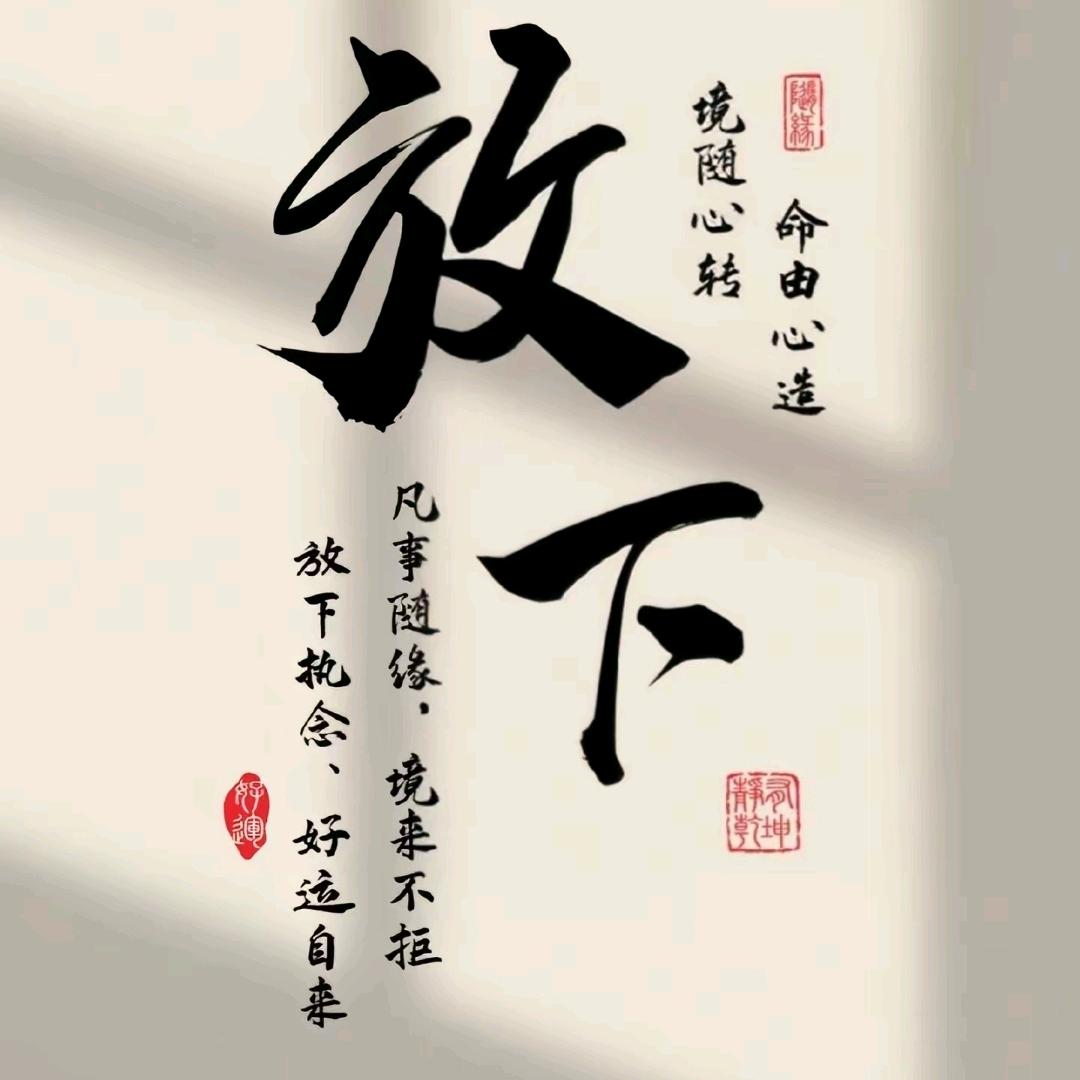 随緣
命由心造
境随心转
放下
有坤
靜乾
凡事随缘，境来不拒
放下执念、好运自来
好運